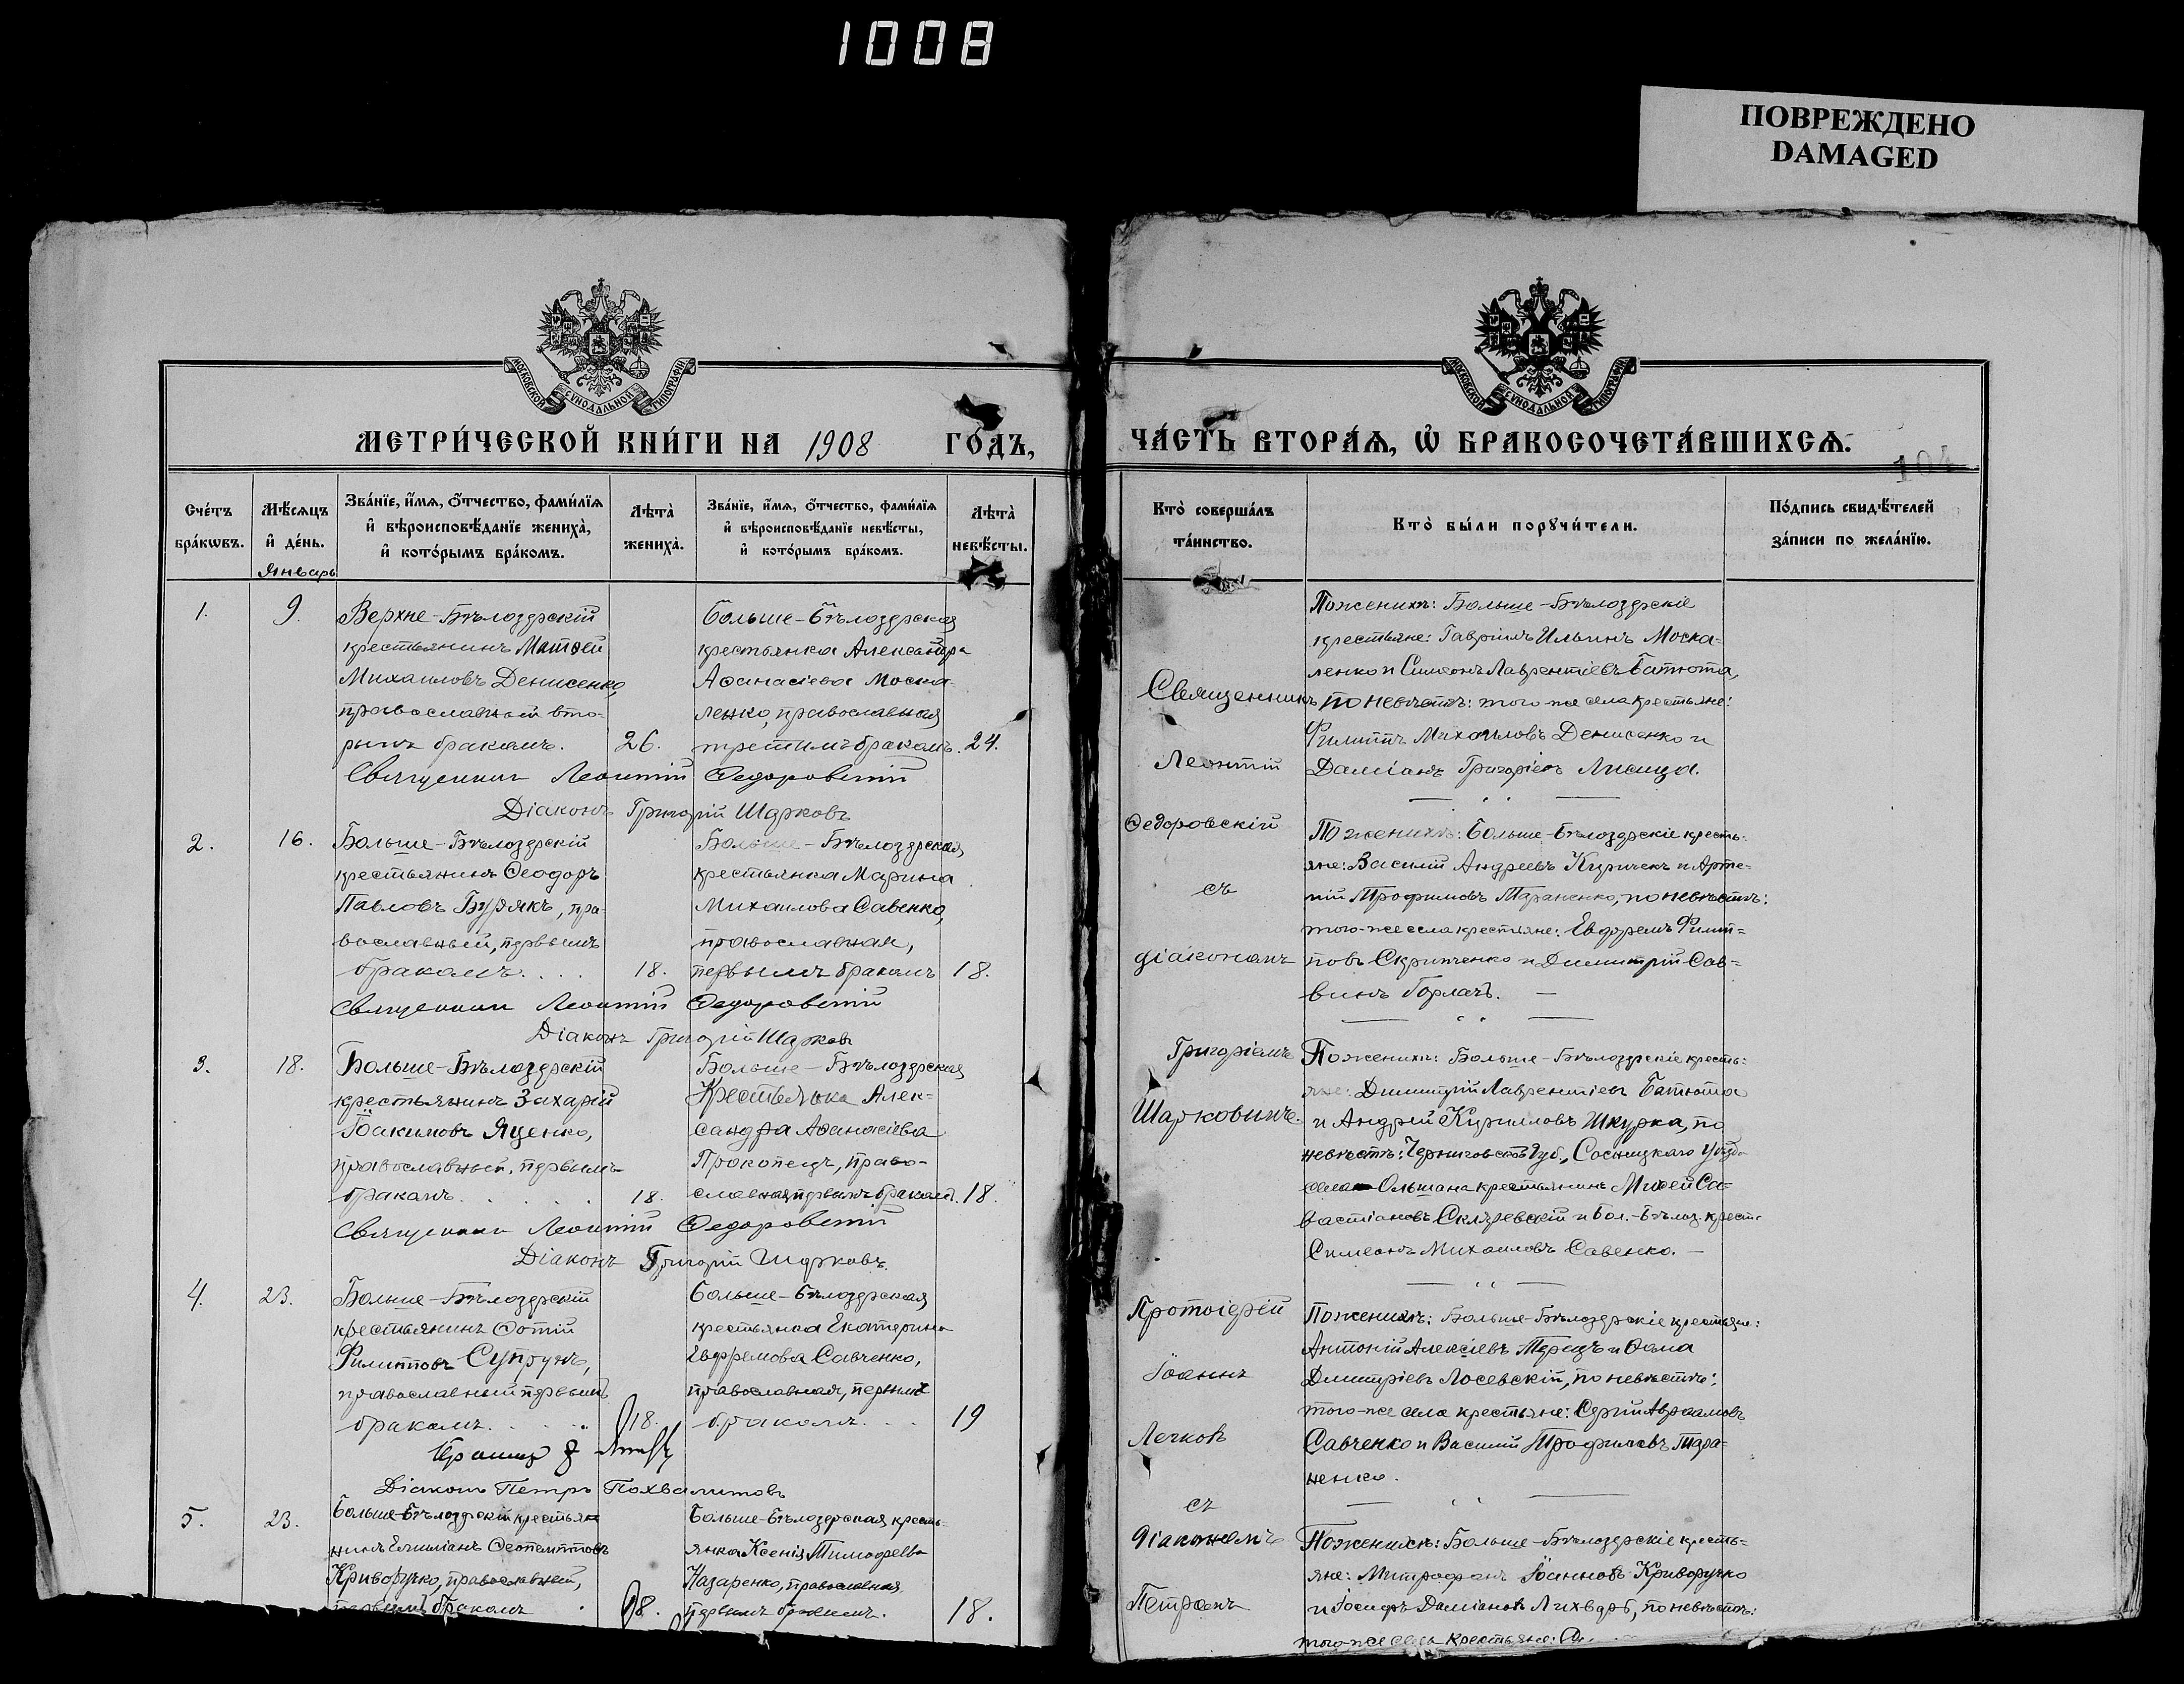 1008
ПОВРЕЖДЕНО
DAMAGED
МОСКОВСКОЙ СУНОДАЛЬНОЙ ТИПОГРАФІИ
МЕТРИ́ЧЕСКОЙ КНИ́ГИ НА 1908 ГО́ДЪ,
Сче́тъ бра́кѡвъ.
Мѣ́сяцъ и҆ де́нь.
Январь
Зва́нїе, и҆́мѧ, ѻ҆́тчество, фами́лїѧ
и҆ вѣроисповѣ́данїе жениха̀,
и҆ кото́рымъ бра́комъ.
Лѣта̀ жениха̀.
Зва́нїе, и҆́мѧ, ѻ҆́тчество, фами́лїѧ
и҆ вѣроисповѣ́данїе невѣ́сты,
и҆ кото́рымъ бра́комъ.
Лѣта̀ невѣ́сты.
1.
9.
Верхне-Бѣлозерскій
крестьянинъ Матѳей
Михаиловъ Денисенко,
православный вто-
рымъ бракомъ.
26.
Больше-Бѣлозерская
крестьянка Александра
Аѳанасіева Моска-
ленко, православная
третимъ бракомъ.
24.
Священникъ Леонтій Ѳедоровскій
Діаконъ Григорій Шарковъ
2.
16.
Больше-Бѣлозерскій
крестьянинъ Ѳеодоръ
Павловъ Бурякъ, пра-
вославный, первымъ
бракомъ. . . .
18.
Больше-Бѣлозерская
крестьянка Марина
Михаилова Савенко,
православная,
первымъ бракомъ
18.
Священникъ Леонтій Ѳедоровскій
Діаконъ Григорій Шарковъ
3.
18.
Больше-Бѣлозерскій
крестьянинъ Захарій
Іоакимовъ Яценко,
православный, первымъ
бракомъ. . . . .
18.
Больше-Бѣлозерская
Крестьянка Алек-
сандра Аѳанасіева
Прокопецъ, право-
славная, первымъ бракомъ.
18.
Священникъ Леонтій Ѳедоровскій
Діаконъ Григорій Шарковъ.
4.
23.
Больше-Бѣлозерскій
крестьянинъ Фотій
Филипповъ Супрунъ,
православный первымъ
бракомъ. . . .
18.
Больше-Бѣлозерская
крестьянка Екатерина
Евфремова Савченко,
православная, первымъ
бракомъ. . .
19
Діаконъ Петръ Похвалитовъ
5.
23.
Больше-Бѣлозерскій крестья-
нинъ Емиліанъ Ѳеопемптовъ
Криворучко, православный,
первымъ бракомъ .
18.
Больше-Бѣлозерская кресть-
янка Ксенія Тимофеева
Назаренко, православная
первымъ бракомъ.
18.
МОСКОВСКОЙ СУНОДАЛЬНОЙ ТИПОГРАФІИ
ЧА́СТЬ ВТОРА́Ѧ, Ѡ҆ БРАКОСОЧЕТА́ВШИХСѦ.
104
Кто̀ соверша́лъ та́инство.
Кто̀ бы́ли порꙋчи́тели.
По́дпись свидѣ́телей
за́писи по жела́нїю.
Священникъ
Леонтій
Ѳедоровскій
съ
діакономъ
Григоріемъ
Шарковымъ.
Протоіерей
Іоаннъ
съ
діакономъ
Петромъ
По женихѣ: Больше-Бѣлозерскіе
крестьяне: Гавріилъ Ильинъ Моска-
ленко и Симеонъ Лаврентіевъ Батюта,
по невѣстѣ: того-же села крестьяне:
Филиппъ Михаиловъ Денисенко и
Даміанъ Григоріевъ Лисица.
По женихѣ: Больше-Бѣлозерскіе кресть-
яне: Василій Андреевъ Киричекъ и Арте-
мій Трофимовъ Тараненко, по невѣстѣ:
того-же села крестьяне: Евфремъ Филип-
повъ Скрипченко и Димитрій Сав-
винъ Горлачъ. —
По женихѣ: Больше-Бѣлозерскіе кресть-
яне: Димитрій Лаврентіевъ Батюта
и Андрей Кирилловъ Шкурка, по
невѣстѣ: Черниговской губ., Сосницкаго уѣзда
села Ольшана крестьянинъ Михей Са-
вастіановъ Скляревскій и Бол.-Бѣлоз. крест.
Симеонъ Михаиловъ Савенко. —
По женихѣ: Больше-Бѣлозерскіе крестьяне:
Антоній Алексіевъ Терецъ и Ѳома
Димитріевъ Лосевскій, по невѣстѣ:
того-же села крестьяне: Сергій Авраамовъ
Савченко и Василій Трофимовъ Тара-
ненко.
По женихѣ: Больше-Бѣлозерскіе кресть-
яне: Митрофанъ Іоанновъ Криворучко
и Іосифъ Даміановъ Лихварь, по невѣстѣ:
того-же села крестьяне: